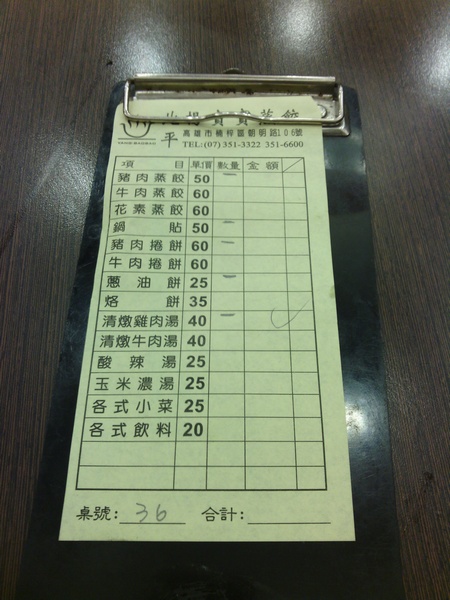 北平楊寶寶蒸餃
高雄市楠梓區朝明路106號
TEL:(07)351-3322 351-6600
項目 單價 數量 金額
豬肉蒸餃 50 一
牛肉蒸餃 60
花素蒸餃 60
鍋貼 50 一
豬肉捲餅 60 一
牛肉捲餅 60
蔥油餅 25 一
烙餅 35
清燉雞肉湯 40 一
清燉牛肉湯 40
酸辣湯 25
玉米濃湯 25
各式小菜 25
各式飲料 20
桌號: 36 合計: